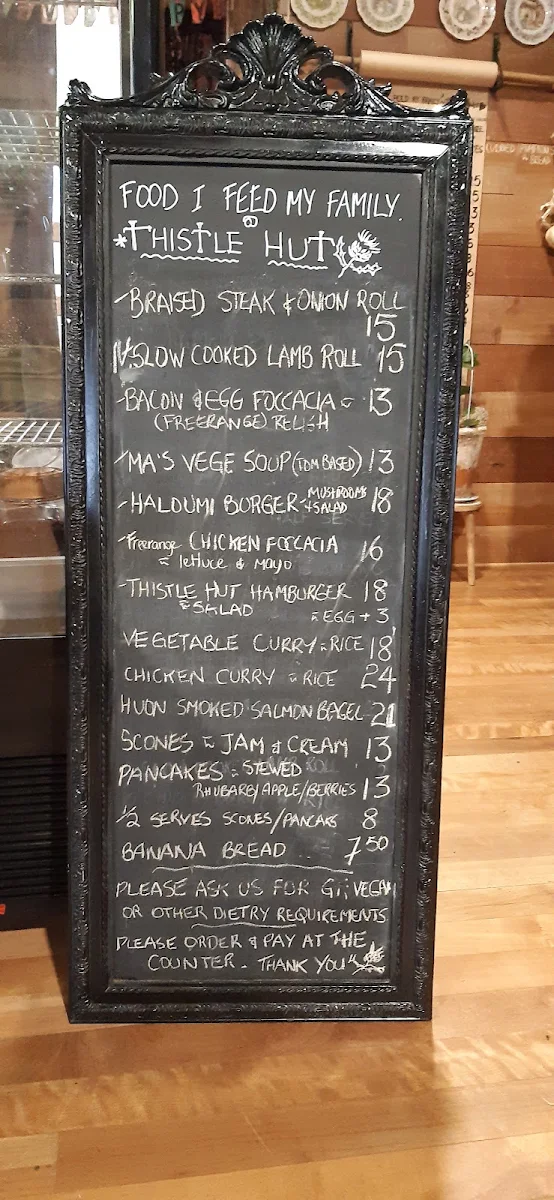 FOOD I FEED MY FAMILY.
@
*THISTLE HUT
-BRAISED STEAK & ONION ROLL
15
SLOW COOKED LAMB ROLL 15
-BACON & EGG FOCCACIA 13
(FREERANGE) RELISH
-MA'S VEGE SOUP (TOM BASED) 13
-HALOUMI BURGER-MUSHROOMS 18
+SALAD
-Freerange CHICKEN FOCCACIA 16
lettuce & mayo
-THISTLE HUT HAMBURGER 18
SALAD
EGG + 3
VEGETABLE CURRY RICE 18
CHICKEN CURRY RICE 24
HUON SMOKED SALMON BAGEL 21
SCONES JAM & CREAM 13
PANCAKES STEWED
RHUBARB/APPLE/BERRIES 13
1/2 SERVES SCONES/PANCAKS 8
BANANA BREAD .. 7 50
PLEASE ASK US FOR GF, VEGAN
OR OTHER DIETRY REQUIREMENTS
PLEASE ORDER & PAY AT THE
COUNTER - THANK YOU"